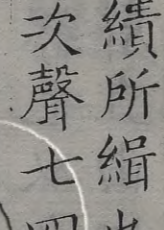 績所緝
次聲七四